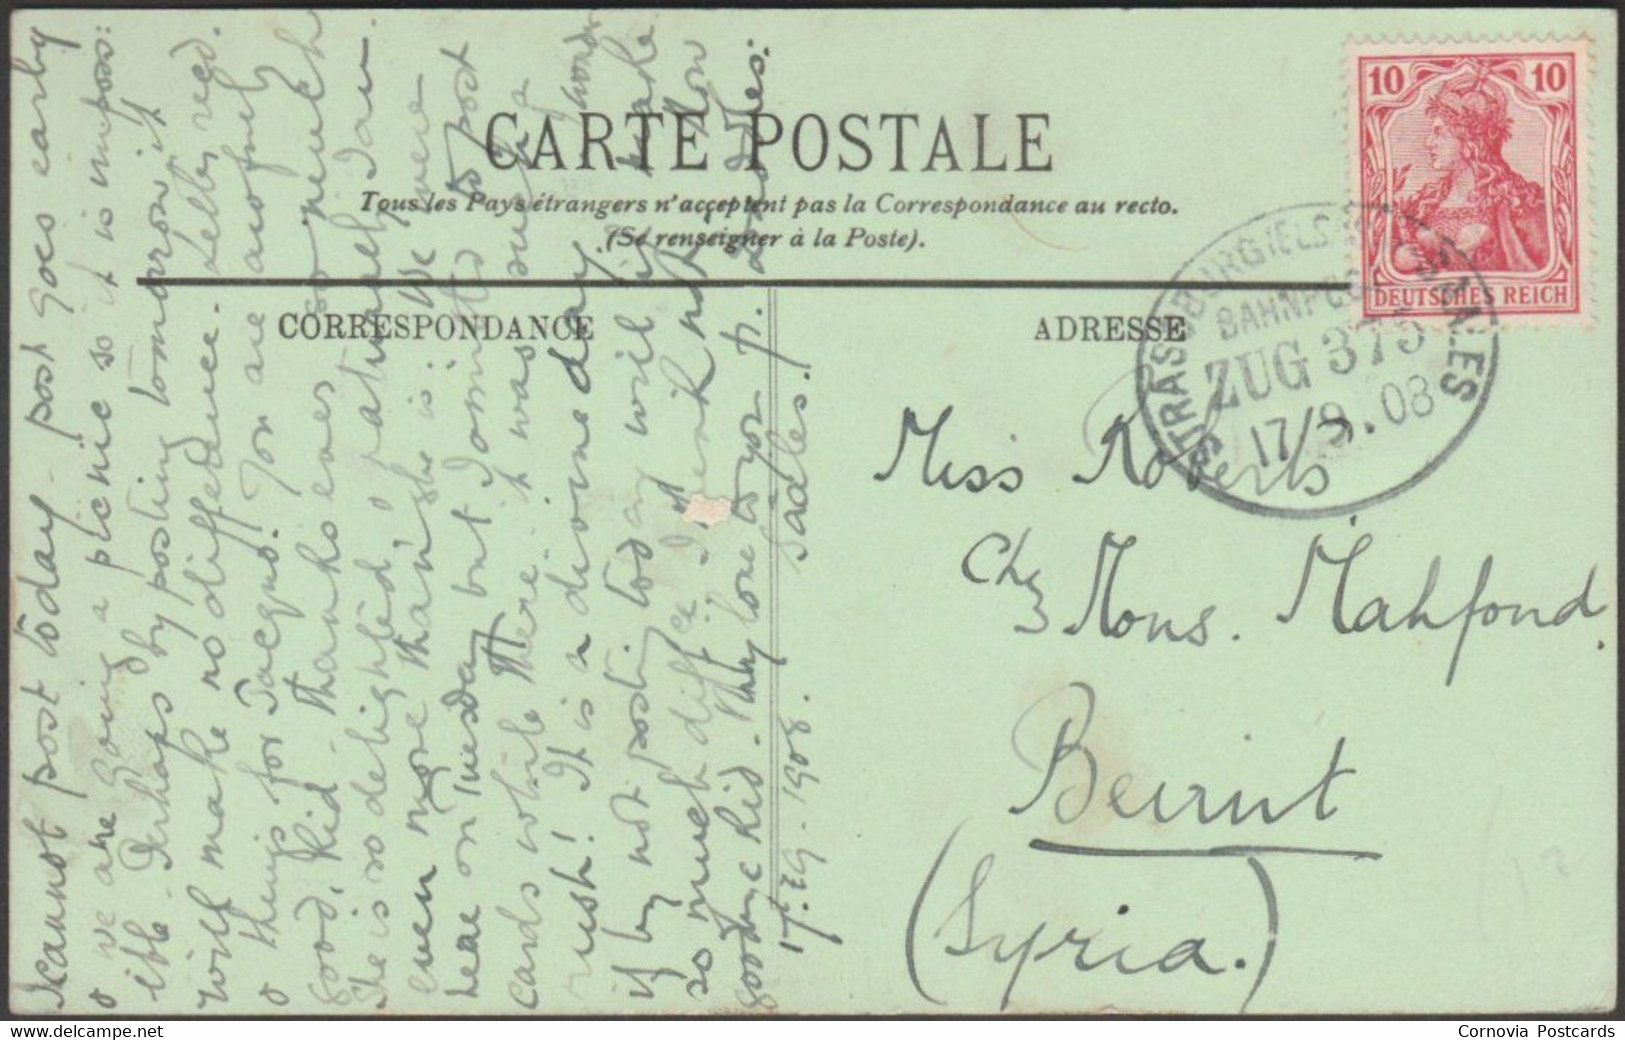 CARTE POSTALE
Tous les Pays étrangers n'acceptent pas la Correspondance au recto.
(Se renseigner à la Poste).
CORRESPONDANCE
ADRESSE
10 10
DEUTSCHES REICH
BAHNPOST
ZUG 375
17/9.08
I cannot post to day - post goes early
& we are going a picnic so it is imposs:
ible. Perhaps by posting tomorrow it
will make no difference. Letter recd.
& thengs for Jacquo. You are awfully
good, Kid - thanks ever so much
She is so delighted, & naturally I am
even more than she is: We were
here on Tuesday but I omitted to post
cards while there: it was such a
rush! It is a divine day. I wonder
if by not posting today will it make
so much diffce I think not. How
goodbye Kid. My love to you fr. another:
17.IX.1908. Saales.
Miss Roberts
Chez Mons. Mahfond.
Beirut
(Syria.)
www.delcampe.net
Cornovia Postcards